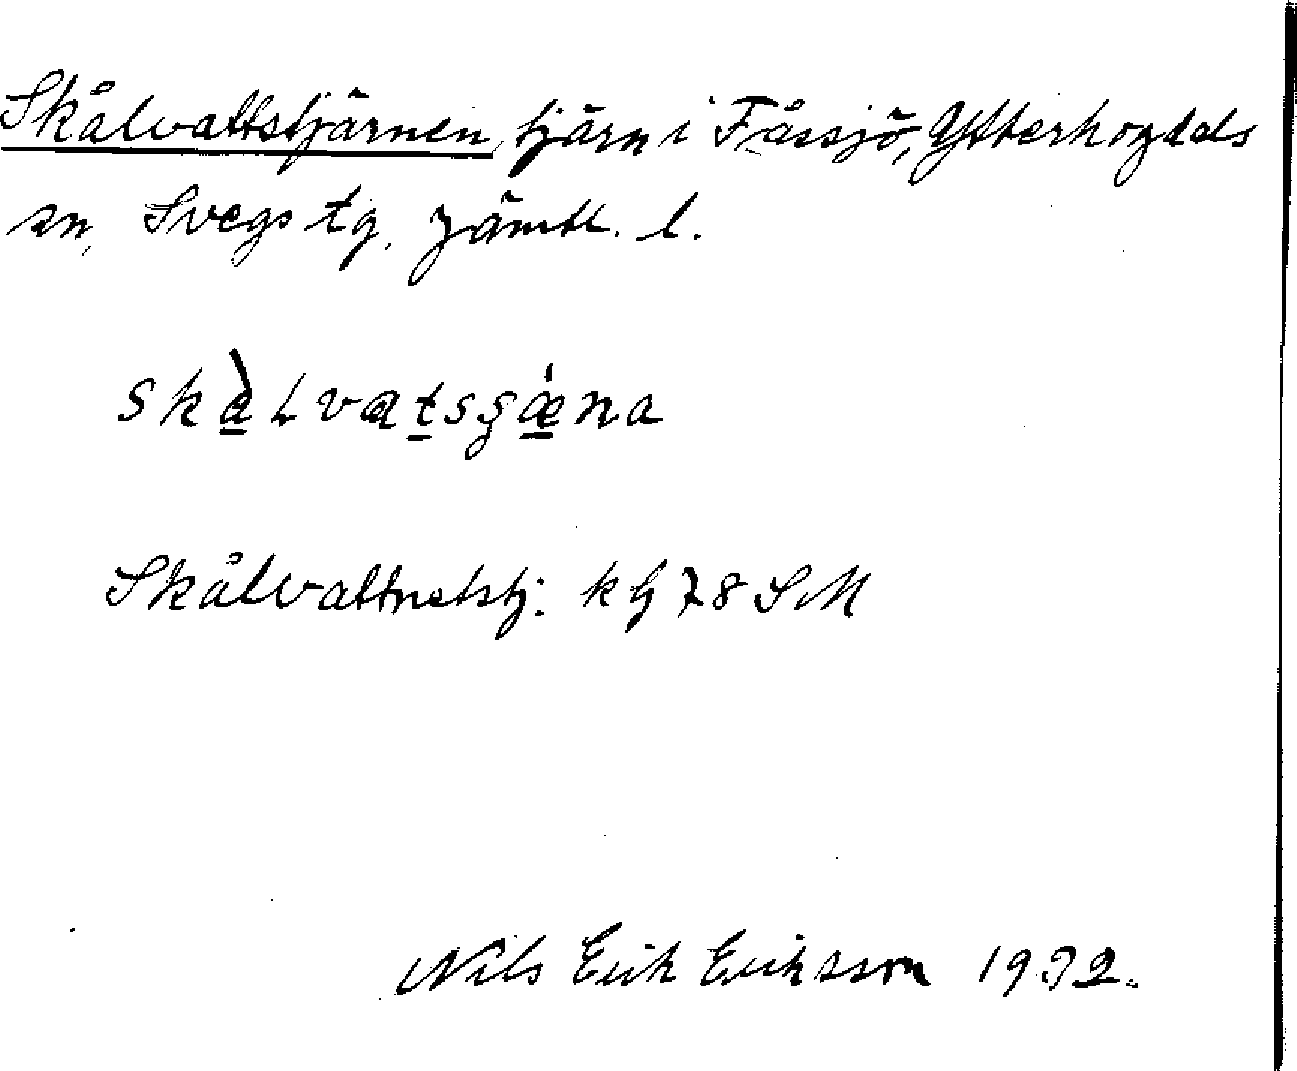 Skålvattstjärnen, tjärn i Fåssjö, Ytterhogdals
sn, Svegs tg. Jämtl. l.
skàLvatsʂǽna
Skålvattnetstj: kG 78 SM
Nils Erik Eriksson 1932.